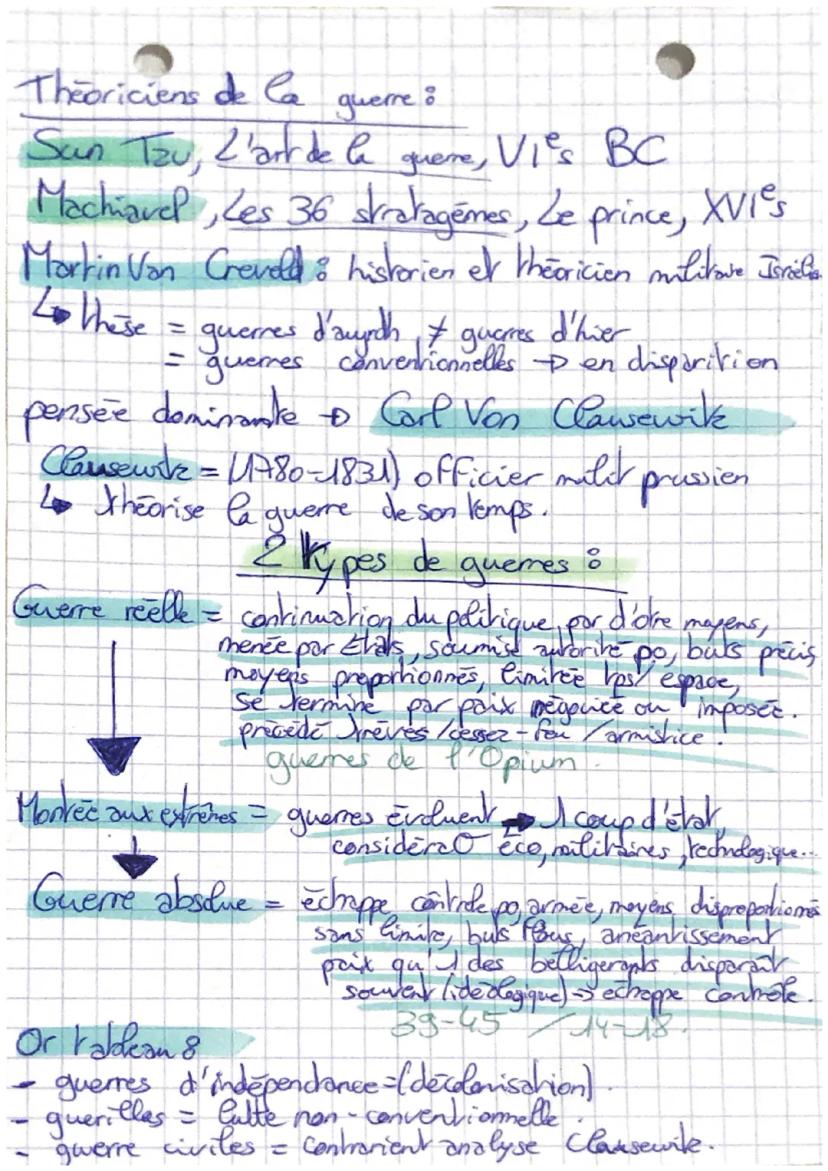 Théoriciens de la guerre :
Sun Tzu, L'art de la guerre, VIe s BC
Machiavel, Les 36 stratagèmes, Le prince, XVIe s
Martin Van Creveld : historien et théoricien militaire Israélie
↳ thèse = guerres d'aujrdh ≠ guerres d'hier
= guerres conventionnelles → en disparition
pensée dominante → Carl Von Clausewitz
Clausewitz = (1780-1831) officier milit prussien
↳ théorise la guerre de son temps.
2 types de guerres :
Guerre réelle = continuation du politique par d'otre moyens,
menée par États, soumise autorité po, buts précis
moyens proportionnés, limitée tps/espace,
se termine par paix négociée ou imposée.
précédé trèves/cessez-feu/armistice.
guerres de l'Opium.
Montée aux extrêmes = guerres évoluent → 1 coup d'état,
considéraO éco, militaires, technologique...
Guerre absolue = échappe contrôle po, armée, moyens disproportionnés
sans limite, buts flous, anéantissement
paix qu'1 des belligerants disparaît
souvent (idéologique) → échappe contrôle.
39-45 / 14-18.
Or tableau :
- guerres d'indépendance = (décolonisation)
- guerillas = lutte non-conventionnelle.
- guerre civiles = contrarient analyse Clausewitz.